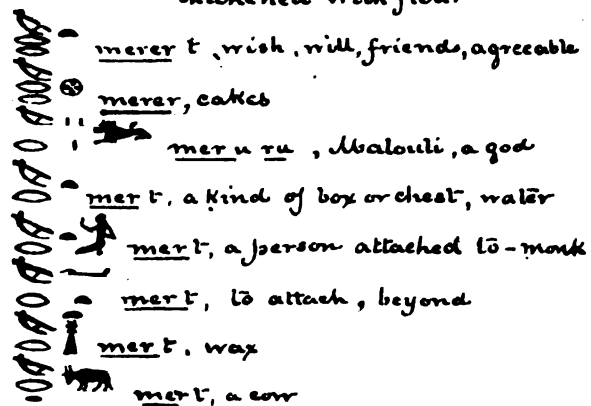 thickened with flour
merer t, wish, will, friends, agreeable
merer, cakes
mer u ru, Malouli, a god
mer t, a kind of box or chest, water
mer t, a person attached to - monk
mer t, to attach, beyond
mer t, wax
mer t, a cow